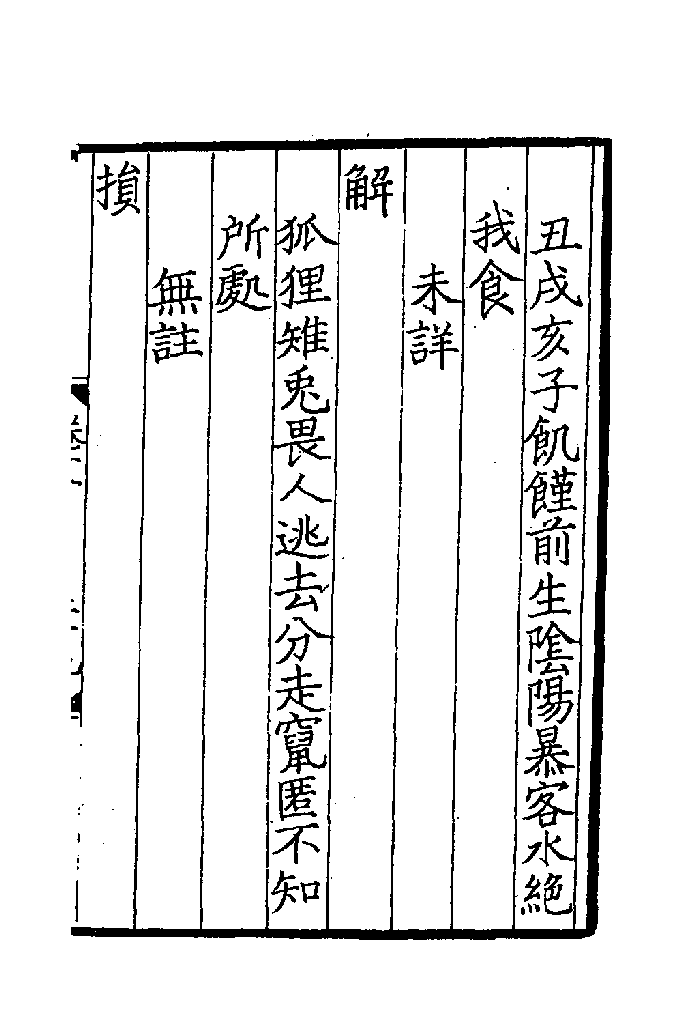 丑戌亥子飢饉前生陰陽暴客水絶
我食
未詳
解
狐狸雉兎畏人逃去分走竄匿不知
所處
無註
損